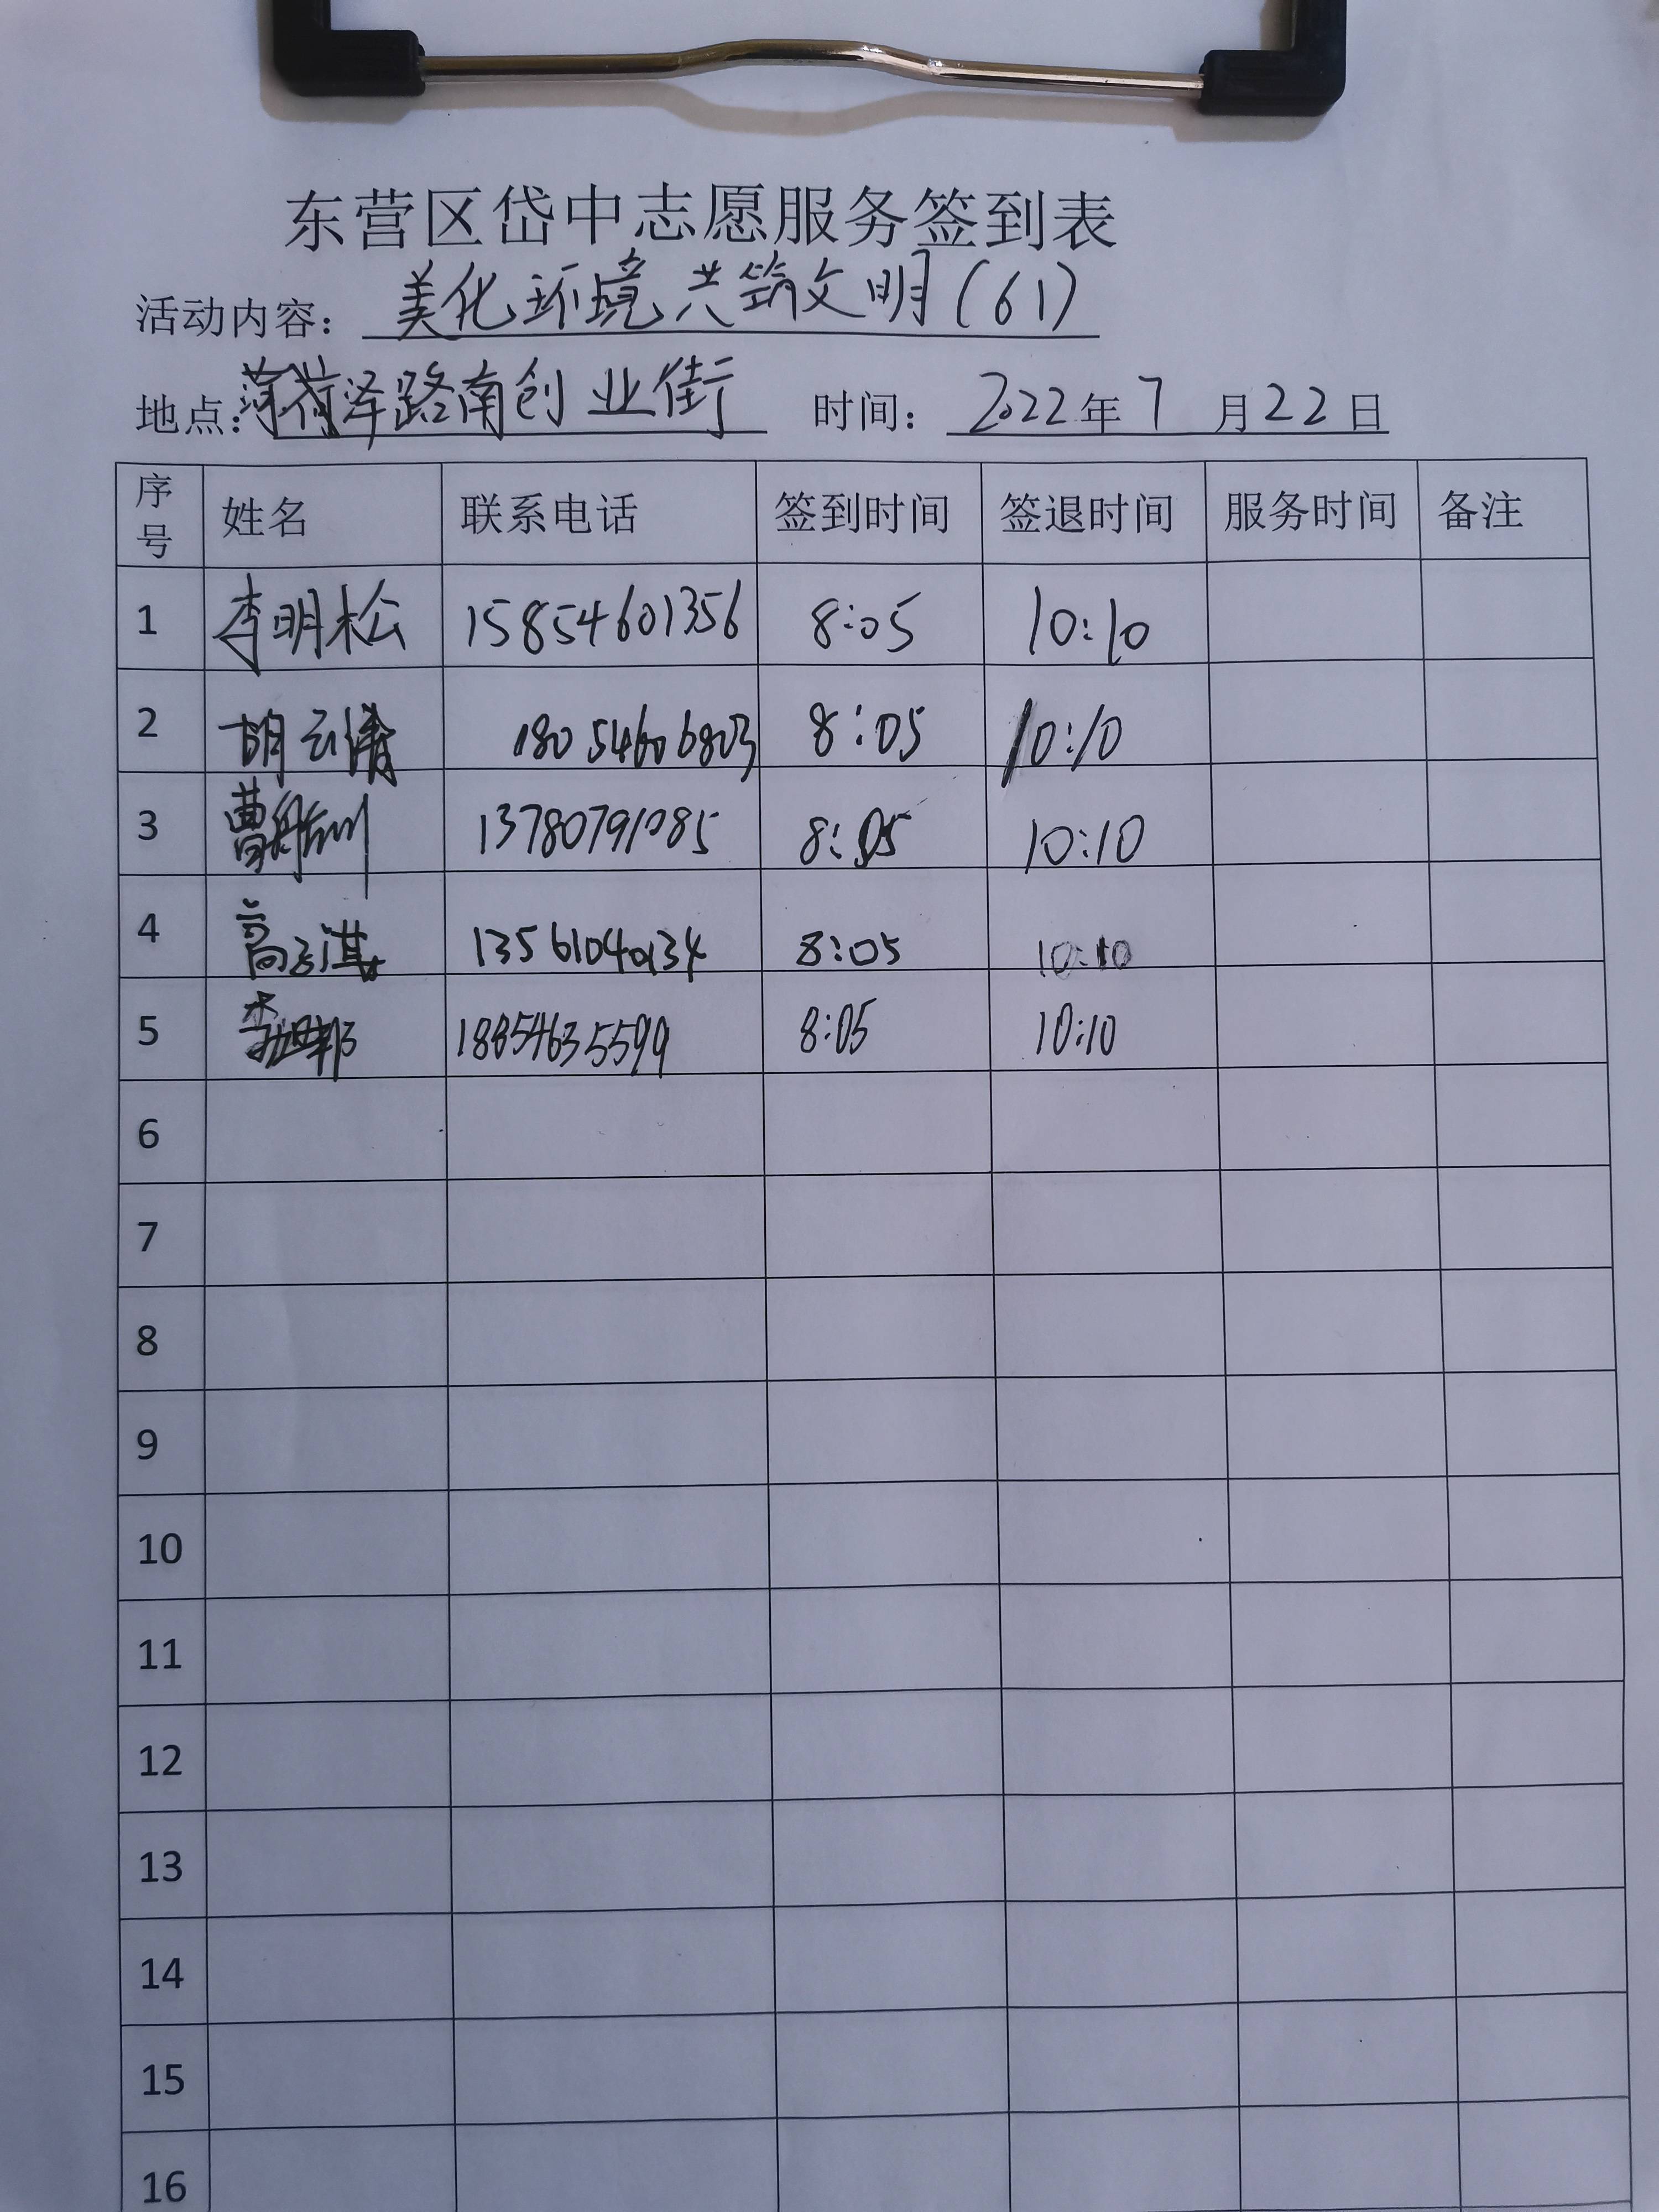 东营区岱中志愿服务签到表
活动内容: 美化环境共筑文明(61)
地点: 菏泽路南创业街 时间: 2022年7月22日
序号 姓名 联系电话 签到时间 签退时间 服务时间 备注
1 李明松 15854601356 8:05 10:10
2 胡云清 18054606803 8:05 10:10
3 曹 13780791085 8:05 10:10
4 高云淇 13561040134 8:05 10:10
5 李 18854635599 8:05 10:10
6
7
8
9
10
11
12
13
14
15
16